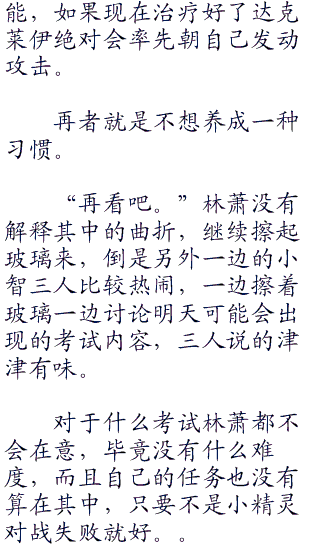 能，如果现在治疗好了达克
莱伊绝对会率先朝自己发动
攻击。
再者就是不想养成一种
习惯。
“再看吧。”林萧没有
解释其中的曲折，继续擦起
玻璃来，倒是另外一边的小
智三人比较热闹，一边擦着
玻璃一边讨论明天可能会出
现的考试内容，三人说的津
津有味。
对于什么考试林萧都不
会在意，毕竟没有什么难
度，而且自己的任务也没有
算在其中，只要不是小精灵
对战失败就好。。